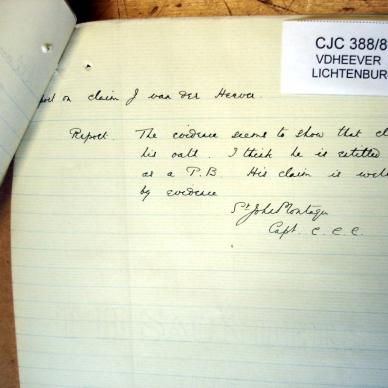 CJC 388/8
VDHEEVER
LICHTENBUR
port on claim J van der Heever.
Report. The evidence seems to show that cl
his oath. I think he is entitled
as a P.B. His claim is well
by evidence
St John Montagu
Capt. C.C.C.